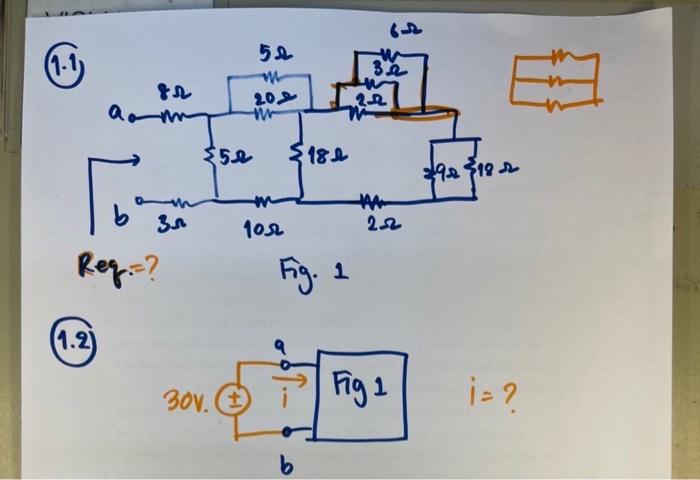 1.1
6Ω
5Ω
3Ω
8Ω
20Ω
2Ω
a
5Ω
18Ω
9Ω
18Ω
b
3Ω
10Ω
2Ω
Req.=?
Fig. 1
1.2
a
30V.
±
i
Fig 1
i=?
b